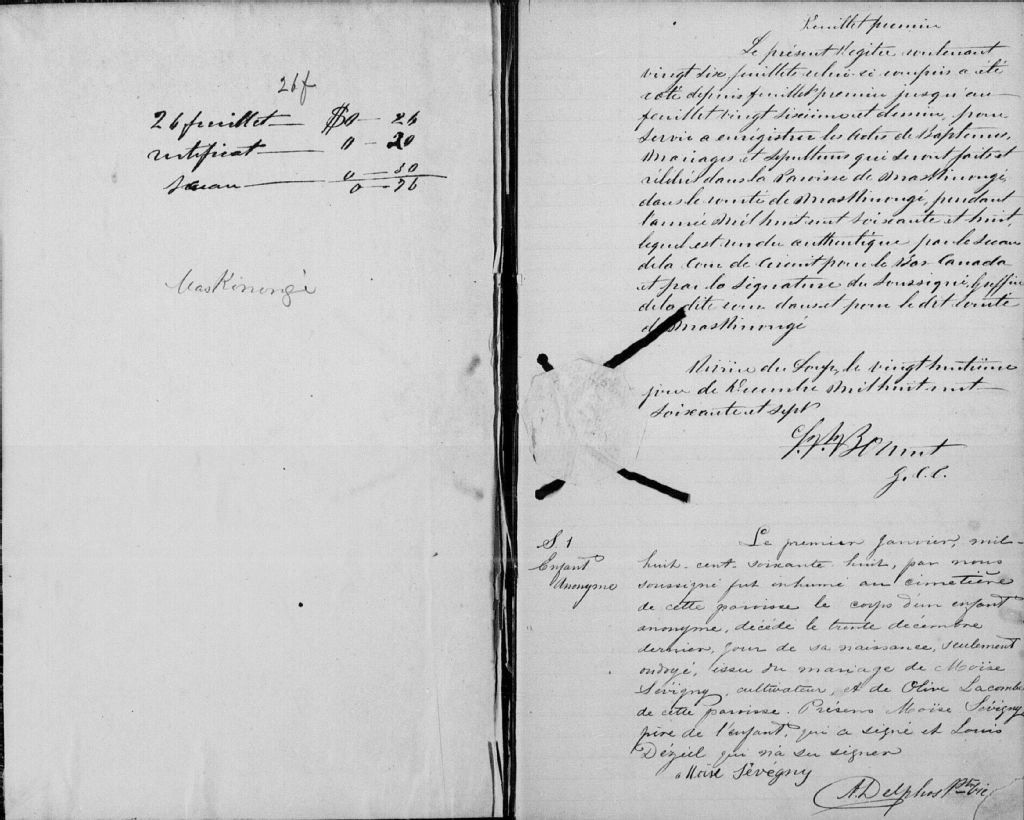 26f
26 feuillet — $0 — 26
certificat — 0 — 20
Sceau — 0 — 30
0 — 76
Maskinongé
Feuillet premier
Le présent Régitre contenant
vingt six feuillets celui-ci compris a été
coté depuis feuillet premier jusqu'au
feuillet vingt sixième et dernier, pour
servir a enrégistrer les Actes de Baptemes,
Mariages et Sépultures qui seront faits et
célébrés dans la Paroisse de Maskinongé,
dans le comté de Maskinongé, pendant
l'année Mil huit cent soixante et huit,
lequel est rendu authentique par le Sceau
de la Cour de Circuit pour le Bas Canada
et par la Signature du Soussigné, Greffier
de la dite cour dans et pour le dit comté
de Maskinongé
Rivière du Loup, le vingt huitième
jour de Décembre Mil huit cent
soixante et sept
G.C.C.
S. 1
Enfant
Anonyme
Le premier Janvier, mil-
huit-cent-soixante huit, par nous
soussigné fut inhumé au cimetière
de cette paroisse le corps d'un enfant
anonyme, décédé le trente décembre
dernier, jour de sa naissance, seulement
ondoyé, issu du mariage de Moïse
Sévigny, cultivateur, et de Olive Lacombe
de cette paroisse. Présens Moïse Sévigny
père de l'enfant, qui a signé et Louis
Déziel qui n'a su signer
Moïse Sévégny
A. Delphos Ptre Vic